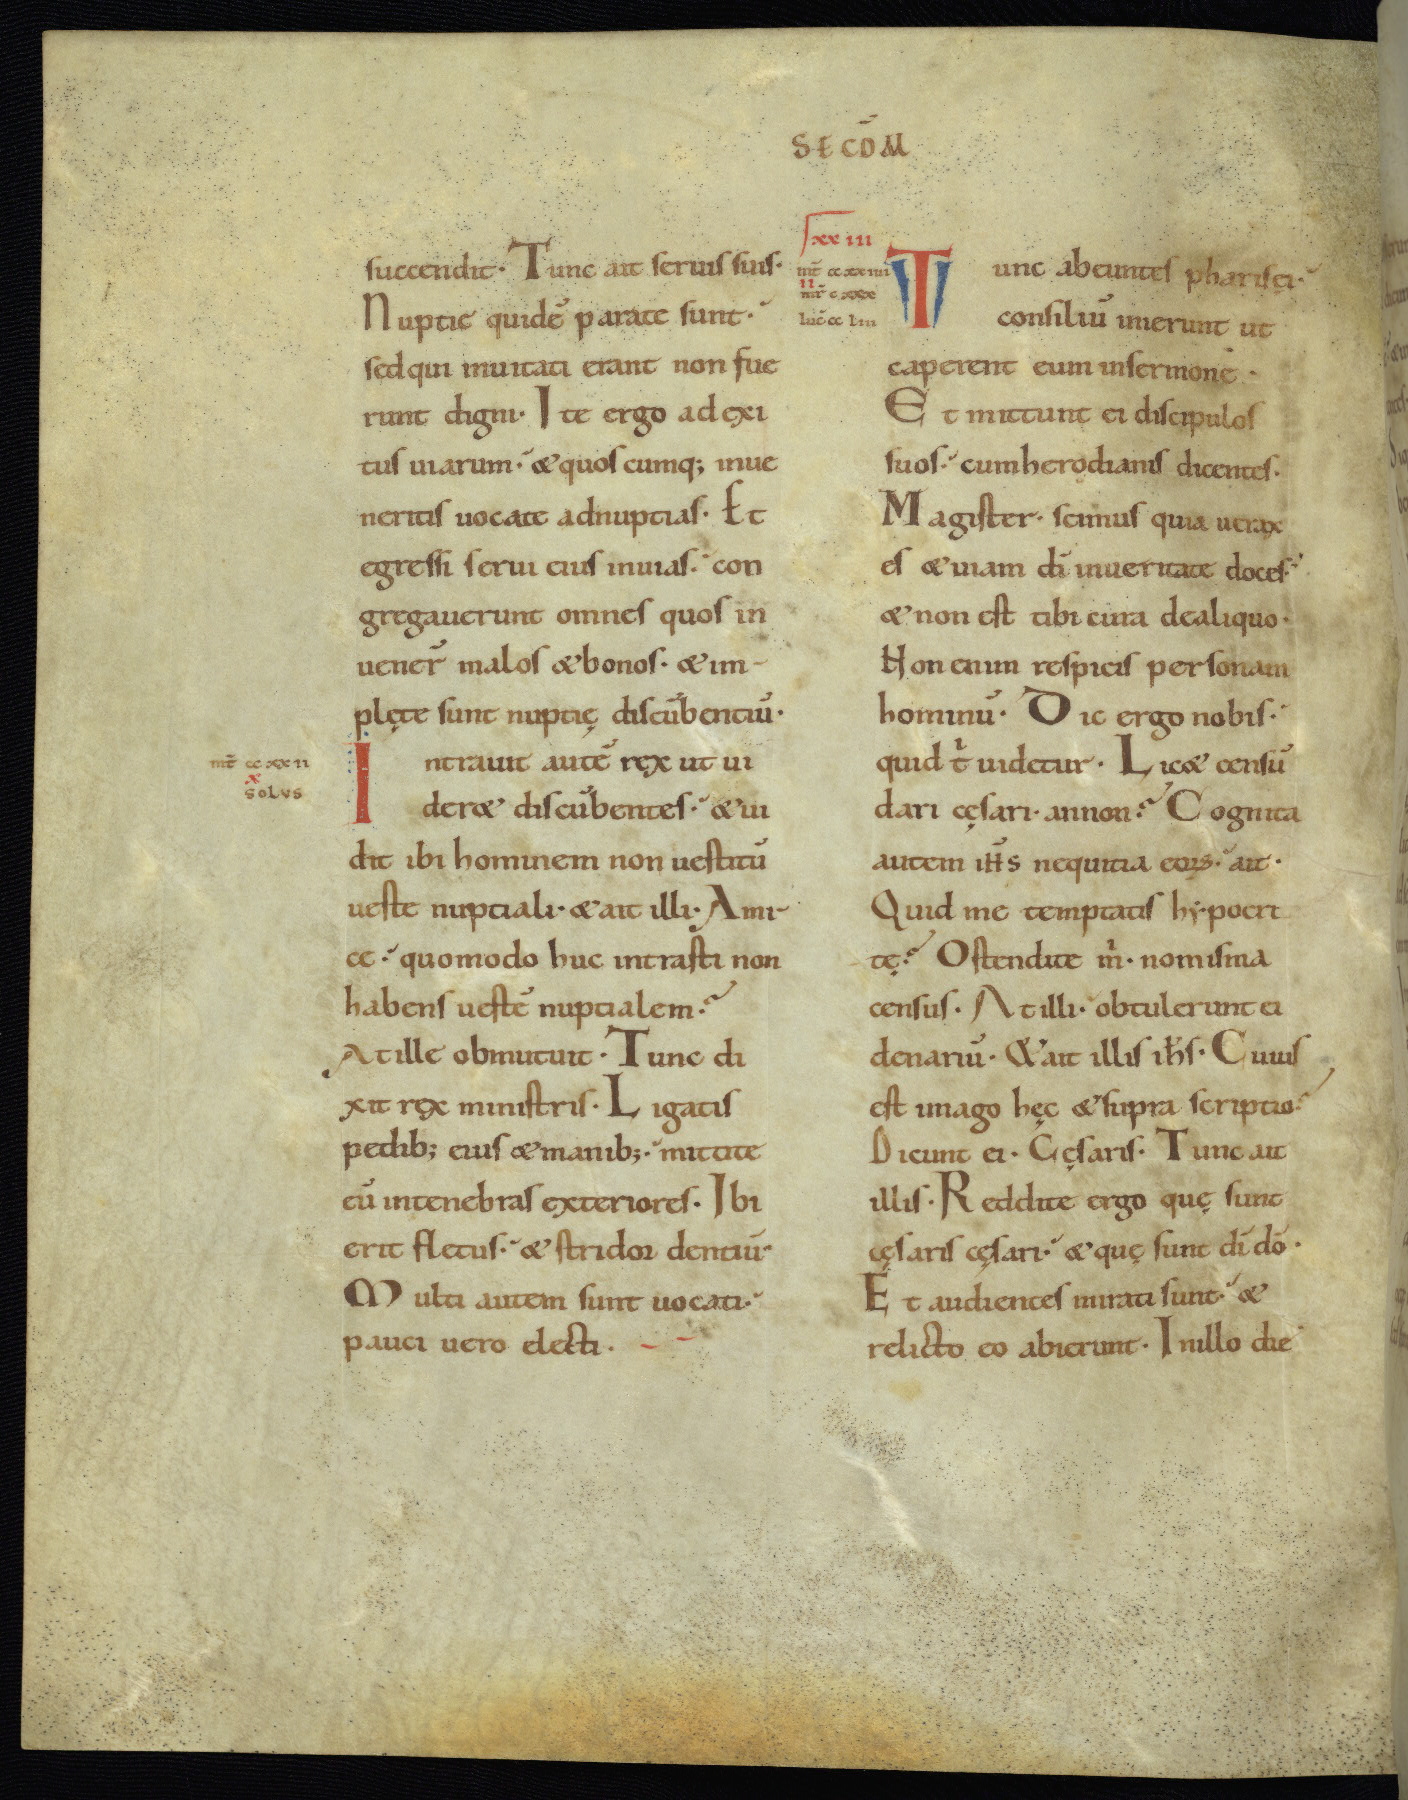 SECD̄M
succendit· Tunc ait seruis suis·
Nuptie quidē parate sunt·
sed qui inuitati erant non fue
runt digni· Ite ergo ad exi
tus uiarum· & quoscumq; inue
neritis uocate ad nuptias· Et
egressi serui eius in uias· con
gregauerunt omnes quos in
uener̄ malos & bonos· & im-
plęte sunt nuptię discūbentiū·
mt̄ cc xx ii
x
solus
Intrauit autē rex ut ui
der& discūbentes· & ui
dit ibi hominem non uestitū
ueste nuptiali· & ait illi· Ami-
ce· quomodo huc intrasti non
habens uestē nuptialem·
At ille obmutuit· Tunc di
xit rex ministris· Ligatis
pedib; eius & manib;· mittite
eū in tenebras exteriores· Ibi
erit fletus· & stridor dentiū·
Multi autem sunt uocati·
pauci uero electi·
xx iii
mt̄ cc xx iii
ii
mr̄ c xxx
luc̄ cc l iii
Tunc abeuntes pharisęi·
consiliū inierunt ut
caperent eum in sermone·
Et mittunt ei discipulos
suos· cum herodianis dicentes·
Magister· scimus quia uerax
es & uiam dī in ueritate doces·
& non est tibi cura de aliquo·
Non enim respicis personam
hominū· Dic ergo nobis·
quid t' uidetur· Lic& censū
dari cęsari· an non· Cognita
autem ih̄s nequitia eoꝝ· ait·
Quid me temptatis hypocri
tę· Ostendite m'· nomisma
census· At illi· obtulerunt ei
denariū· & ait illis ih̄s· Cuius
est imago hęc & suprascriptio·
Dicunt ei· Cęsaris· Tunc ait
illis· Reddite ergo quę sunt
cęsaris cęsari· & quę sunt dī dō·
Et audientes mirati sunt· &
relicto eo abierunt· In illo die